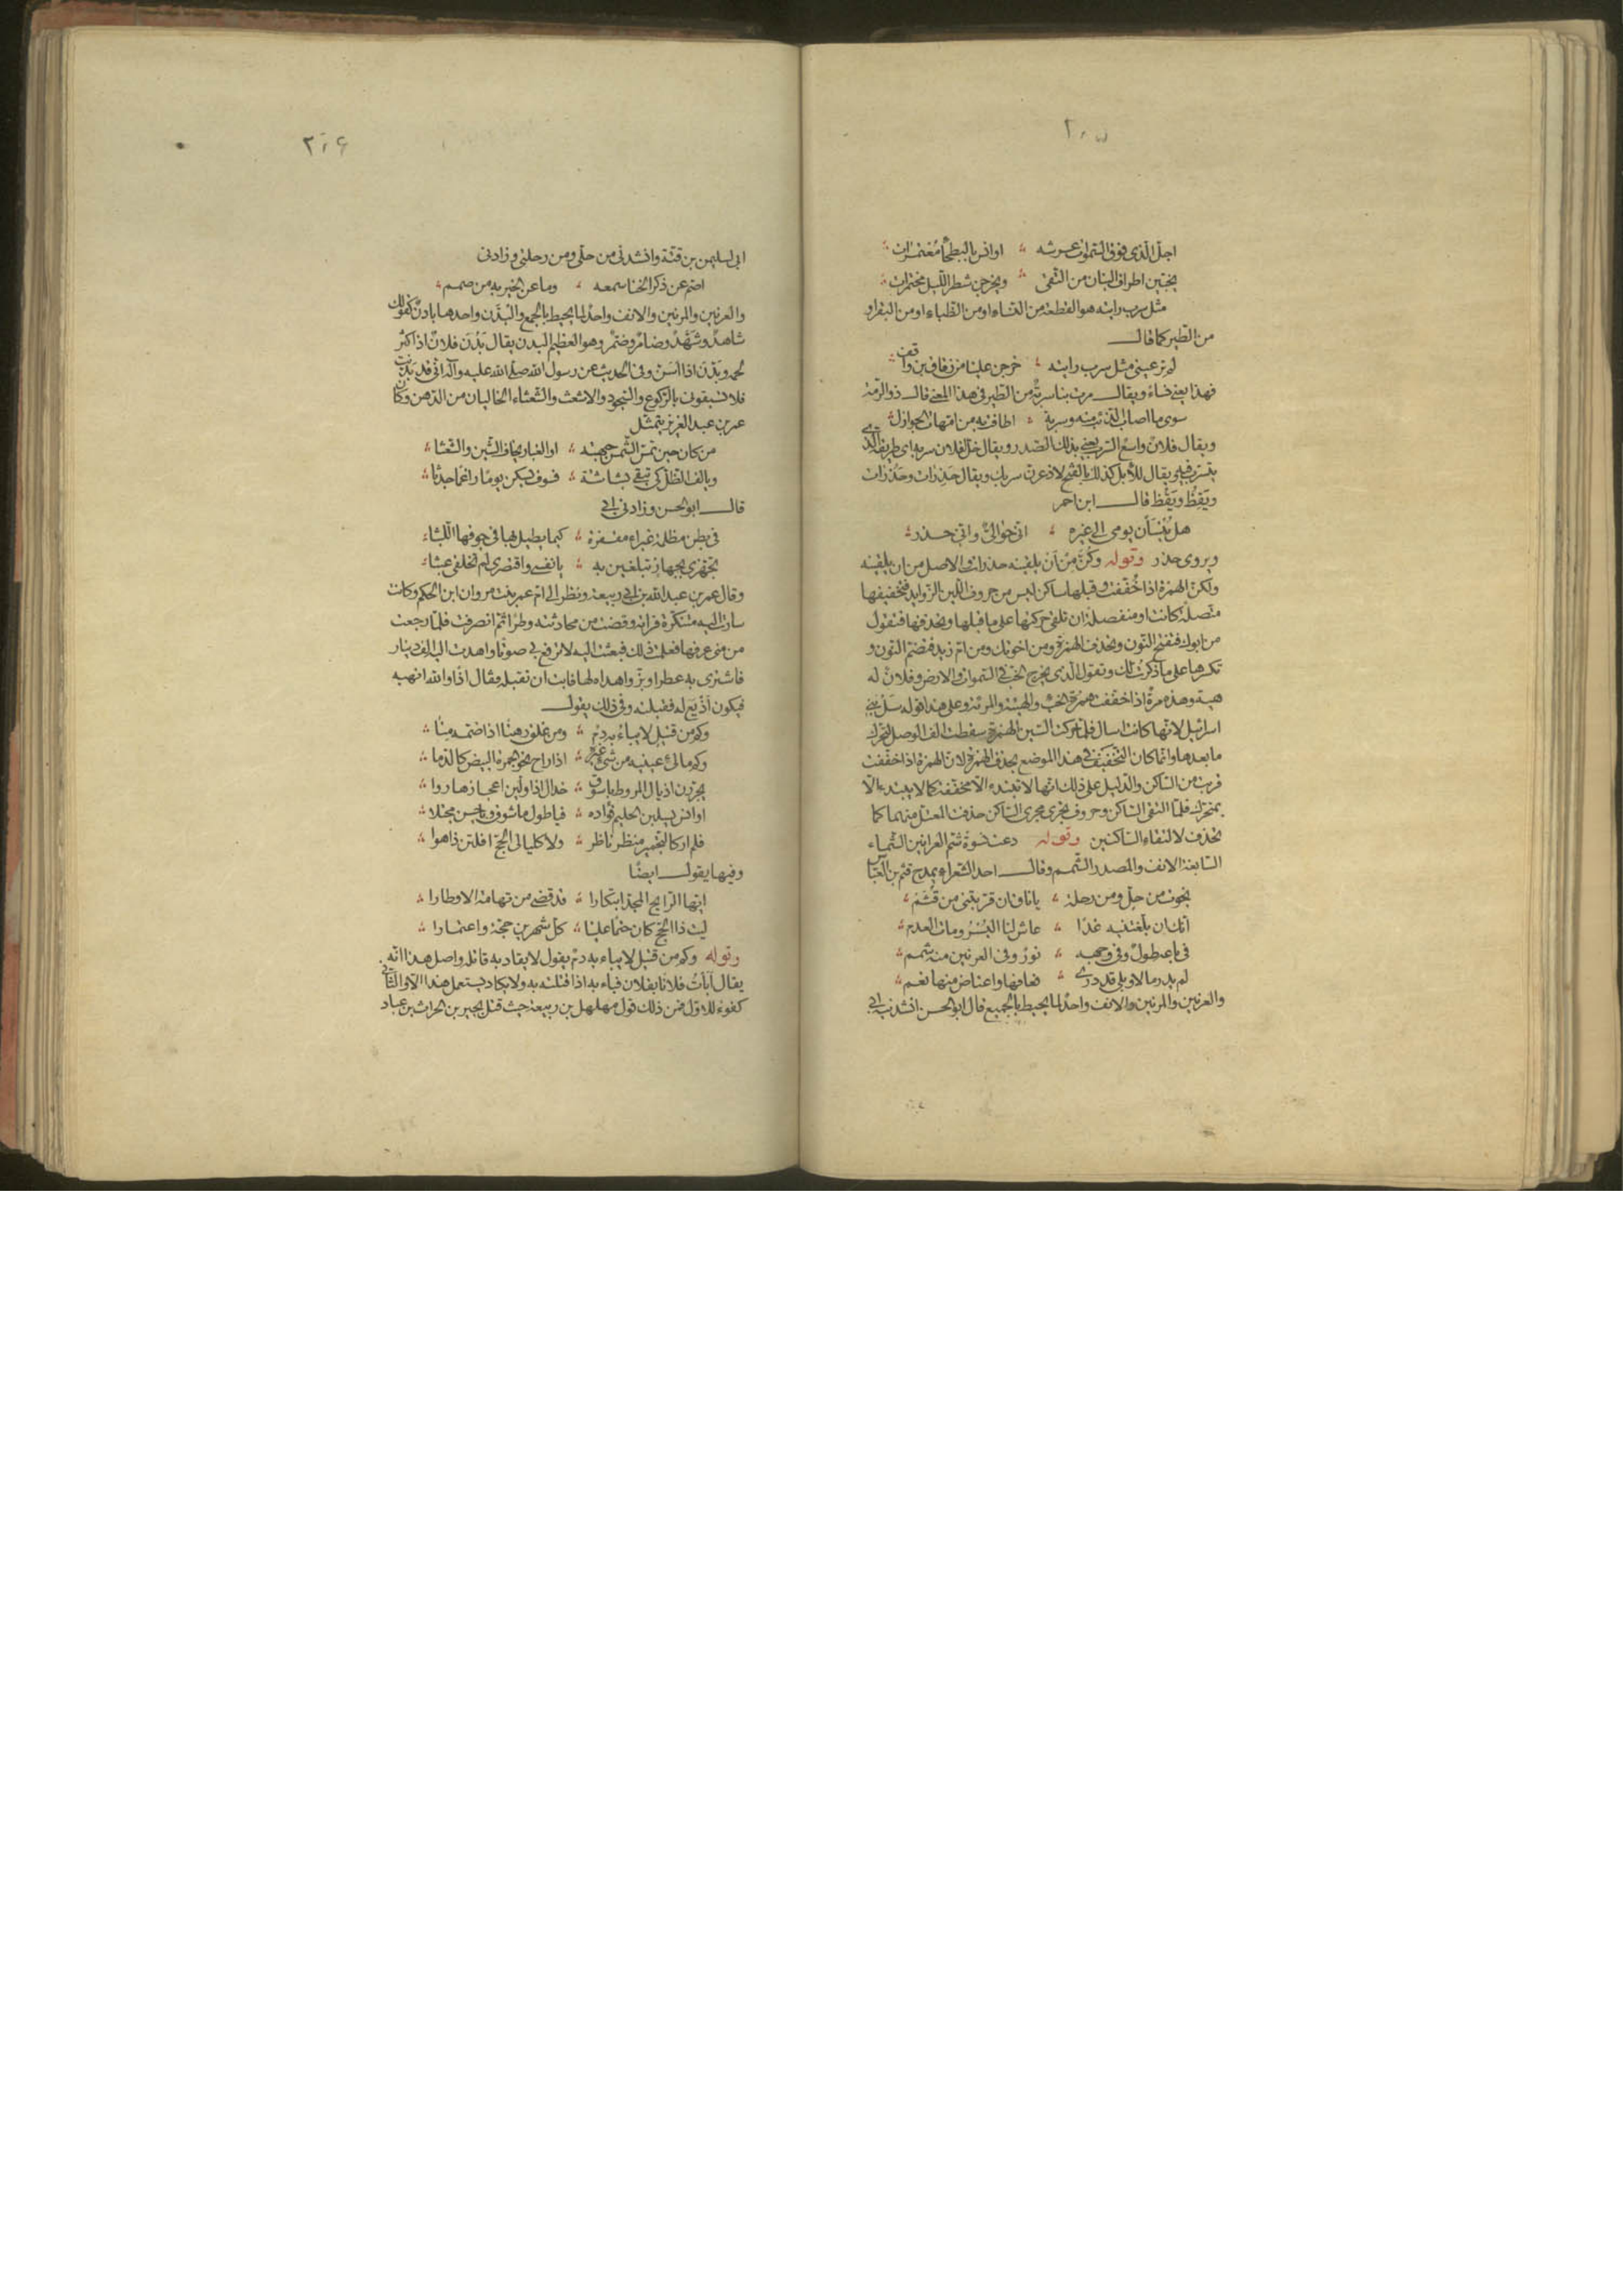 ٢٠٥
اجلّ الّذي فوق السّموات عرشه ؞ اوانس بالبطحاء مُعْتمرات ؞
يخبّين اطراف البنان من التّقى ؞ ويخرجن شطر اللّيل مختمرات ؞
مثل سرب رايته هو القطعة من النساء او من الظباء او من البقر او
من الطّير كما قال
لم تر عيني مثل سرب رايته ؞ خرجن علينا من زقاق بن واقف ؞
فهذا يعني نساءً ويقال مرت بنا سربةٌ من الطير في هذا المعنى قال ذو الرّمة
سوى ما اصاب الذّئب منه وسربة ؞ اطافت به من امّهات الجوازل ؞
ويقال فلانٌ واسع السّرب يعني بذلك الصّدر ويقال خلّ لفلان سربه اي طريقه الّذي
يتسرّب فيه ويقال للأبل كذلك بالفتح لاذعرت سربك ويقال حَذِرات وحَذُرات
ويَقِظٌ ويَقُظ قال ابن احمر
هل يُنْسَأن يومي الى غيره ؞ انّي حوالىّ وانّي حذر ؞
ويروى حذر وقوله وكُنَّ مِنَ اَنْ يلقينه حذرات والاصل من ان يلقينه
ولكن الهمزة اذا خُفّفت وقبلها ساكن ليس من حروف اللّين الزّوايد فتخفيفها
متّصلة كانت او منفصلة ان تلقى حركتها على ما قبلها وتحذفها فتقول
من ابوك فتفتح النّون وتحذف الهمزة ومن اخوتك ومن امّ زيد فتضمّ النون و
تكسرها على ما ذكرت لك وتقول الّذي يخرج الخب في السّموات والارض وفلانٌ له
هية وهذه مرةٌ اذا خفّفت همزة الخبء والهيئة والمرئة وعلى هذا قوله سَلْ بني
اسرائيل لانّها كانت اسال فلمّا حركت السّين بالهمزة سقطت الف الوصل لتحرّك
ما بعدها وانّما كان التّخفيف في هذا الموضع بحذف الهمزة لانّ الهمزة اذا خفّفت
قربت من السّاكن والدّليل على ذلك انّها لا تبتدء الّا محقّقة كما لا يبتدء الّا
بمتحرّك فلمّا التقى السّاكن وحروف تجري مجرى السّاكن حذفت المعتل منهما كما
تحذف لالتقاء السّاكنين وقوله دعت نسوة شمّ العرانين الشّماء
السّابغة الانف والمصدر الشّمم وقال احد الشّعراء يمدح قثم بن العبّاس
نجوت من حلّ ومن رحلة ؞ يا ناق ان قرّبتني من قُثَمْ ؞
انّك ان بلّغتنيه غدًا ؞ عاش لنا اليُسْرُ ومات العدم ؞
في باعه طولٌ وفي وجهه ؞ نورٌ وفي العرنين منه شمم ؞
لم يدر ما لا وبلى قد درى ؞ فعافها واعتاض منها نعم ؞
والعرنين والمرنين والانف واحدٌ لما يحيط بالجميع قال ابو الحسن انشدني ابي
٢٠٦
ابى لسليمن بن قتّة وانشدنى من حلّي ومن رحلتي وزادنى
اصمّ عن ذكر الخنا سمعه ؞ وما عن الخير به من صمم ؞
والعرنين والمرنين والانف واحدٌ لما يحيط بالجمع والبُدَّن واحدها بادنٌ كقولك
شاهدٌ وشُهَّدٌ وضامرٌ وضمّر وهو العظيم البدن يقال بَدُن فلانٌ اذا كثر
لحمه وبَدَّن اذا اَسَنّ وفي الحديث عن رسول الله صلّى الله عليه وآله انّي قد بدّنت
فلا تسبقونى بالرّكوع والسّجود والاشعث والشّعثاء الخاليان من الدّهن وكان
عمر بن عبد العزيز يتمثّل
من كان حين تمسّ الشّمس جبهته ؞ او الغبار يخاف الشّين والشّعثا ؞
ويالف الظّلّ كي تبقى بشاشته ؞ فسوف يسكن يومًا راغمًا جدثًا ؞
قال ابو الحسن وزادنى ابي
في بطن مظلمة غبراء مقفرة ؞ كيما يطيل لها في جوفها اللّبثاء
تجهّزي بجهاز تبلغين به ؞ يا نفس واقتصري لم تخلقي عبثا ؞
وقال عمر بن عبد الله بن ابي ربيعة ونظر الى امّ عمر بنت مروان ابن الحكم وكانت
سارت اليه متنكّرة فراته وقضت من محادثته وطرًا ثمّ انصرفت فلمّا رجعت
من منى عرفها فعلمت ذلك فبعثت اليه لا ترفع بي صوتًا واهدت اليه الف دينار
فاشترى به عطرا وبزّ واهداه لها فابت ان تقبله فقال اذًا والله انهبه
فيكون اَذْيَع له فقبلته وفي ذلك يقول
وكم من قتيل لا يباءُ به دمٌ ؞ ومن غلق رهنًا اذا ضمّه منًا ؞
وكم مالئ عينيه من شيء غيره ؞ اذا راح نحو الجمرة البيض كالدّما ؞
يجرّرن اذيال المروط باسوق ؞ خدال اذا ولّين اعجازها روا ؞
اوانس يسلبن الحليم فؤاده ؞ فيا طول ما شوق ويا حسن مجتلا ؞
فلم ار كالتّجمير منظر ناظر ؞ ولا كليالي الحجّ افلتن ذا هوا ؞
وفيها يقول ايضًا
ايّها الرّايح المجدّ ابتكارا ؞ قد قضى من تهامة الاوطارا ؞
ليت ذا الحجّ كان حتمًا علينا ؞ كلّ شهرين حجّة واعتمارا ؞
وقوله وكم من قتيل لا يباء به دمٌ يقول لا يقاد به قاتله واصل هذا انّه
يقال اَبأتُ فلانًا بفلان فباء به اذا قتلته به ولا يكاد يستعمل هذا الّا والثّاني
كفوء للاوّل فمن ذلك قول مهلهل بن ربيعة حيث قتل بجير بن الحراث بن عباد